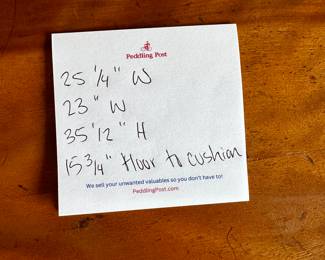 Peddling Post
25 1/4" W
23" W
35 1/2" H
15 3/4" Floor to cushion
We sell your unwanted valuables so you don't have to!
PeddlingPost.com